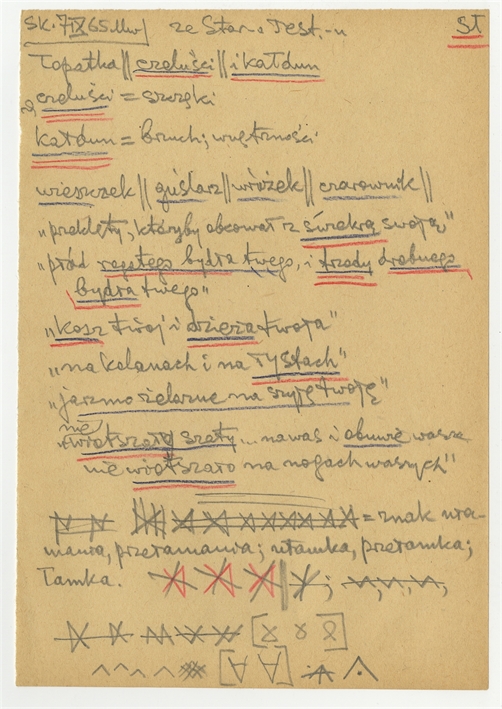 SK. 7IX65. Mw/ ze Star. Test.-u ST
Łopatka || czeluści || i kałdun
czeluści = szczęki
kałdun = brzuch; wnętrzności
wieszczek || guślarz || wróżek || czarownik ||
„przeklęty, któryby obcował z świekrą swoją"
„płód rogatego bydła twego, i trzody drobnego
bydła twego"
„kosz twój i dzieża twoja"
„na kolanach i na łystach"
„jarzmo żelazne na szyję twoję"
„nie zwiotszały szaty... na was i obuwie wasze
nie wiotszało na nogach waszych"
= znak uła-
mania, przełamania; ułamka, przełamka;
łamka.